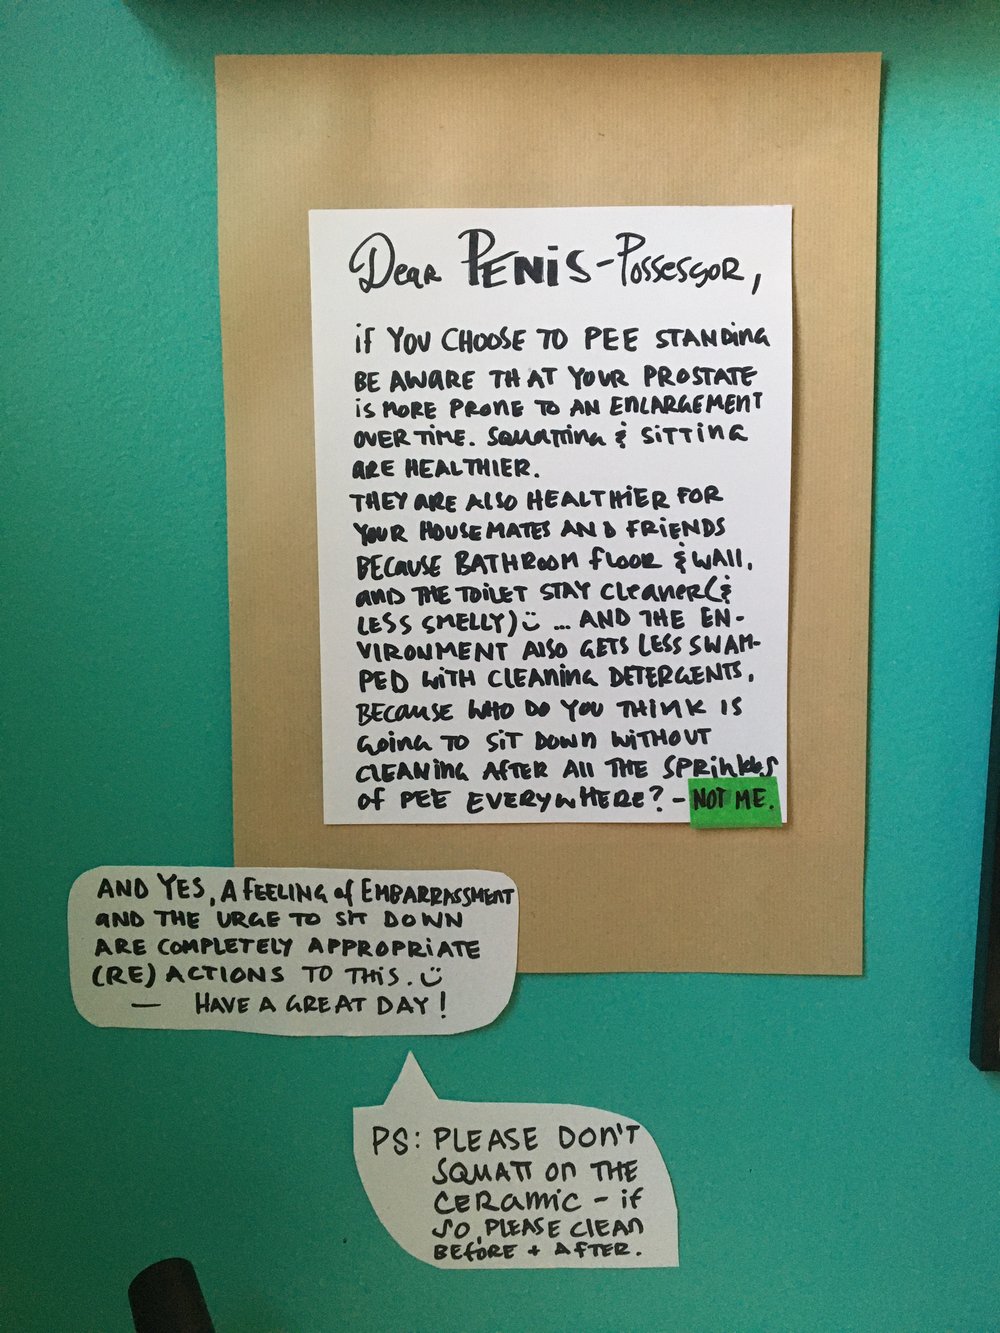 Dear PENiS-Possessor,
if YOU CHOOSE TO PEE STANDing
BE AWARE THAT YOUR PROSTATE
is MORE PRONE TO AN ENLARGEMENT
OVER TIME. SQUATTing & SITTING
ARE HEALTHIER.
THEY ARE ALSO HEALTHiER FOR
YOUR HOUSEMATES AND FRiENDS
BECAUSE BATHROOM flOOR & WAll,
AND THE TOiLET STAY CleaneR (&
LESS SMELLY) :) ... AND THE EN-
VIRONMENT AlSO GETS LESS SWAM-
PED WiTH CLEANiNG DETERGENTS,
BECAUSE WHO DO YOU THiNK IS
GOiNG TO SiT DOWN WiTHOUT
CLEANiNG AFTER All THE SPRiNklES
Of PEE EVERYWHERE? - NOT ME.
AND YES, A fEELiNG of EMBARRASSMENT
AND THE URGE TO SIT DOWN
ARE COMPLETELY APPROPRiATE
(RE)ACTIONS TO THiS. :)
— HAVE A GREAT DAY!
PS: PLEASE DON'T
SQUATT On THE
CERAMiC - if
SO, PLEASE CLEAN
BEfORE + AFTER.